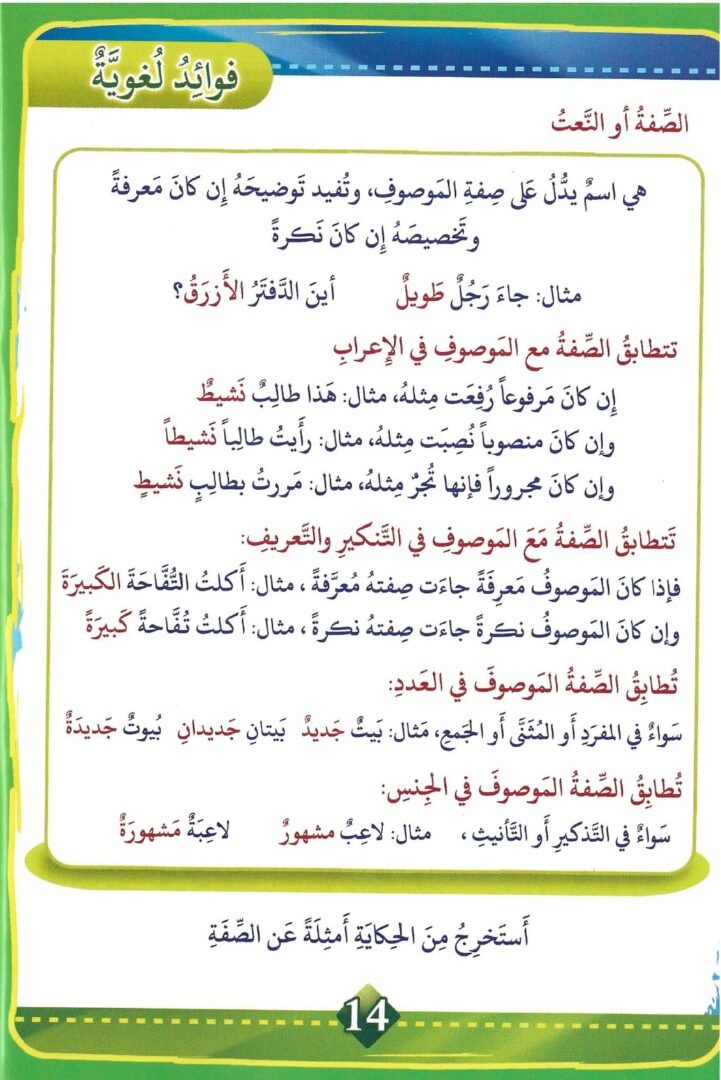 فوائِدُ لُغويَّةٌ
الصِّفةُ أو النَّعتُ
هي اسمٌ يدُّلُ عَلى صِفةِ المَوصوفِ، وتُفيد تَوضيحَهُ إن كانَ مَعرفةً
وتَخصيصَهُ إِن كانَ نَكرةً
مثال: جاءَ رَجُلٌ طَويلٌ أينَ الدَّفتَرُ الأَزرَقُ؟
تتطابقُ الصِّفةُ مع المَوصوفِ في الإِعرابِ
إِن كانَ مَرفوعاً رُفِعَت مِثلهُ، مثال: هَذا طالِبٌ نَشيطٌ
وإن كانَ منصوباً نُصِبَت مِثلهُ، مثال: رأَيتُ طالِباً نَشيطاً
وإن كانَ مجروراً فإنها تُجرُّ مِثلهُ، مثال: مَررتُ بطالِبٍ نَشيطٍ
تَتطابقُ الصِّفةُ مَعَ المَوصوفِ في التَّنكيرِ والتَّعريفِ:
فإذا كانَ المَوصوفُ مَعرِفَةً جاءَت صِفتهُ مُعرَّفةً ، مثال: أَكلتُ التُّفَّاحَةَ الكَبيرَةَ
وإن كانَ المَوصوفُ نكرةً جاءَت صِفتهُ نكرةً ، مثال: أَكلتُ تُفَّاحةً كَبيرَةً
تُطابِقُ الصِّفةُ المَوصوفَ في العَددِ:
سَواءٌ في المفرَدِ أَو المُثنَّى أَو الجَمعِ، مَثال: بَيتٌ جَديدٌ بَيتانِ جَديدانِ بُيوتٌ جَديدَةٌ
تُطابِقُ الصِّفةُ المَوصوفَ في الجِنسِ:
سَواءٌ في التَّذكيرِ أَو التَّأنيثِ ، مثال: لاعِبٌ مشهورٌ لاعِبَةٌ مَشهورَةٌ
أَستَخرِجُ مِنَ الحِكايَةِ أَمثِلَةً عَن الصِّفَةِ
14